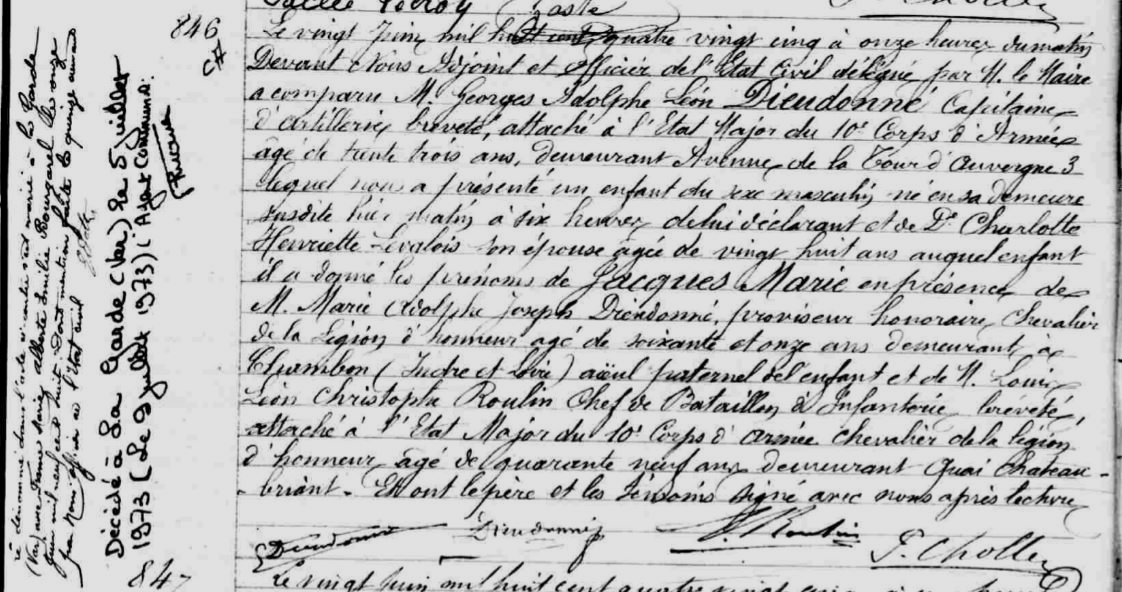 Leroy
P. Cholle
846
Le vingt Juin mil huit cent quatre vingt cinq à onze heures du matin
Devant Nous Adjoint et Officier de l'Etat Civil délégué par M. le Maire
a comparu M. Georges Adolphe Léon Dieudonné Capitaine
d'artillerie breveté, attaché à l'Etat Major du 10e Corps d'Armée
agé de trente trois ans, demeurant Avenue de la Tour d'Auvergne 3
lequel nous a présenté un enfant du sexe masculin né en sa demeure
susdite hier matin à six heures, de lui déclarant et de De Charlotte
Henriette Levalois son épouse agée de vingt huit ans auquel enfant
il a donné les prénoms de Jacques Marie en présence de
M. Marie Adolphe Joseph Dieudonné, proviseur honoraire, Chevalier
de la Légion d'honneur agé de soixante et onze ans demeurant à
Chambon (Indre et Loire) aïeul paternel de l'enfant et de M. Louis
Léon Christophe Roulin Chef de Bataillon d'Infanterie, breveté,
attaché à l'Etat Major du 10e Corps d'armée chevalier de la légion
d'honneur, agé de quarante neuf ans demeurant Quai Chateau-
-briant. Et ont le père et les témoins signé avec nous après lecture
Dieudonné Dieudonné Roulin P. Cholle
847
Le vingt Juin mil huit cent quatre vingt cinq à
Le dénommé dans l'acte ci-contre s'est marié à la Garde
(Var) avec Jeanne Marie Alberte Emilie le onze
juin mil neuf cent huit. Dont mention faite le quinze
par Nous officier de l'Etat civil
Décédé à La Garde (Var) le 5 juillet
1973 (Le 9 juillet 1973) l'Agent Communal: